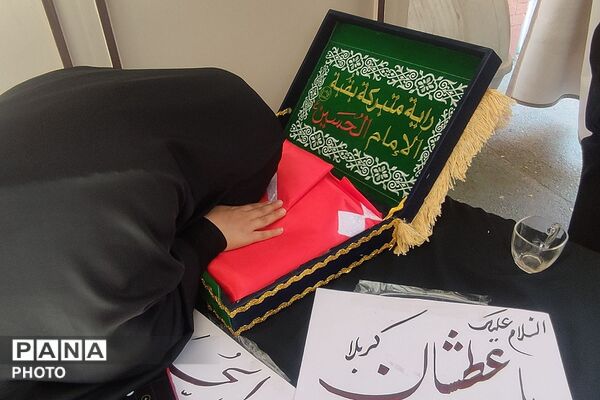 راية متبركة بقبة
الإمام الحسين
السلام علیک
یا
عطشان
کربلا
الحسین
PANA
PHOTO